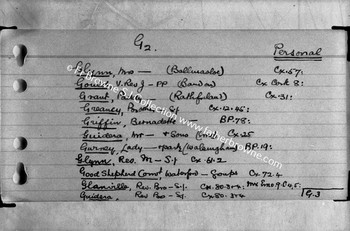 G2.
Personal
Glynn, Mrs — (Ballinasloe) Cx.57:
Gould, V. Rev J - PP (Bandon) Cx 8:
Grant, (Rathfarnham) Cx.31:
Greaney, S.J Cx.12.45:
Griffin, Bernadette BP.78:
Guiders, Mr — + Sons Cx.25
Gurney, Lady — (Walsingham) BP.19:
Glynn, Rev. M - S.J Cx 61.2
Good Shepherd Convt, Waterford - Groups Cx.72.4
Glanville, Rev. Bro - S.J. Cx.80.3+4.
Guidera, Rev Bro - S.J. Cx.80.3+4
G.3